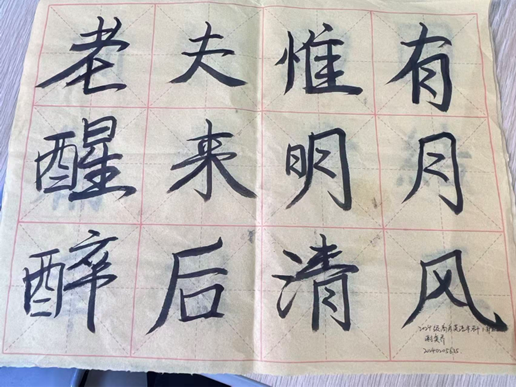 老夫惟有
醒来明月
醉后清风